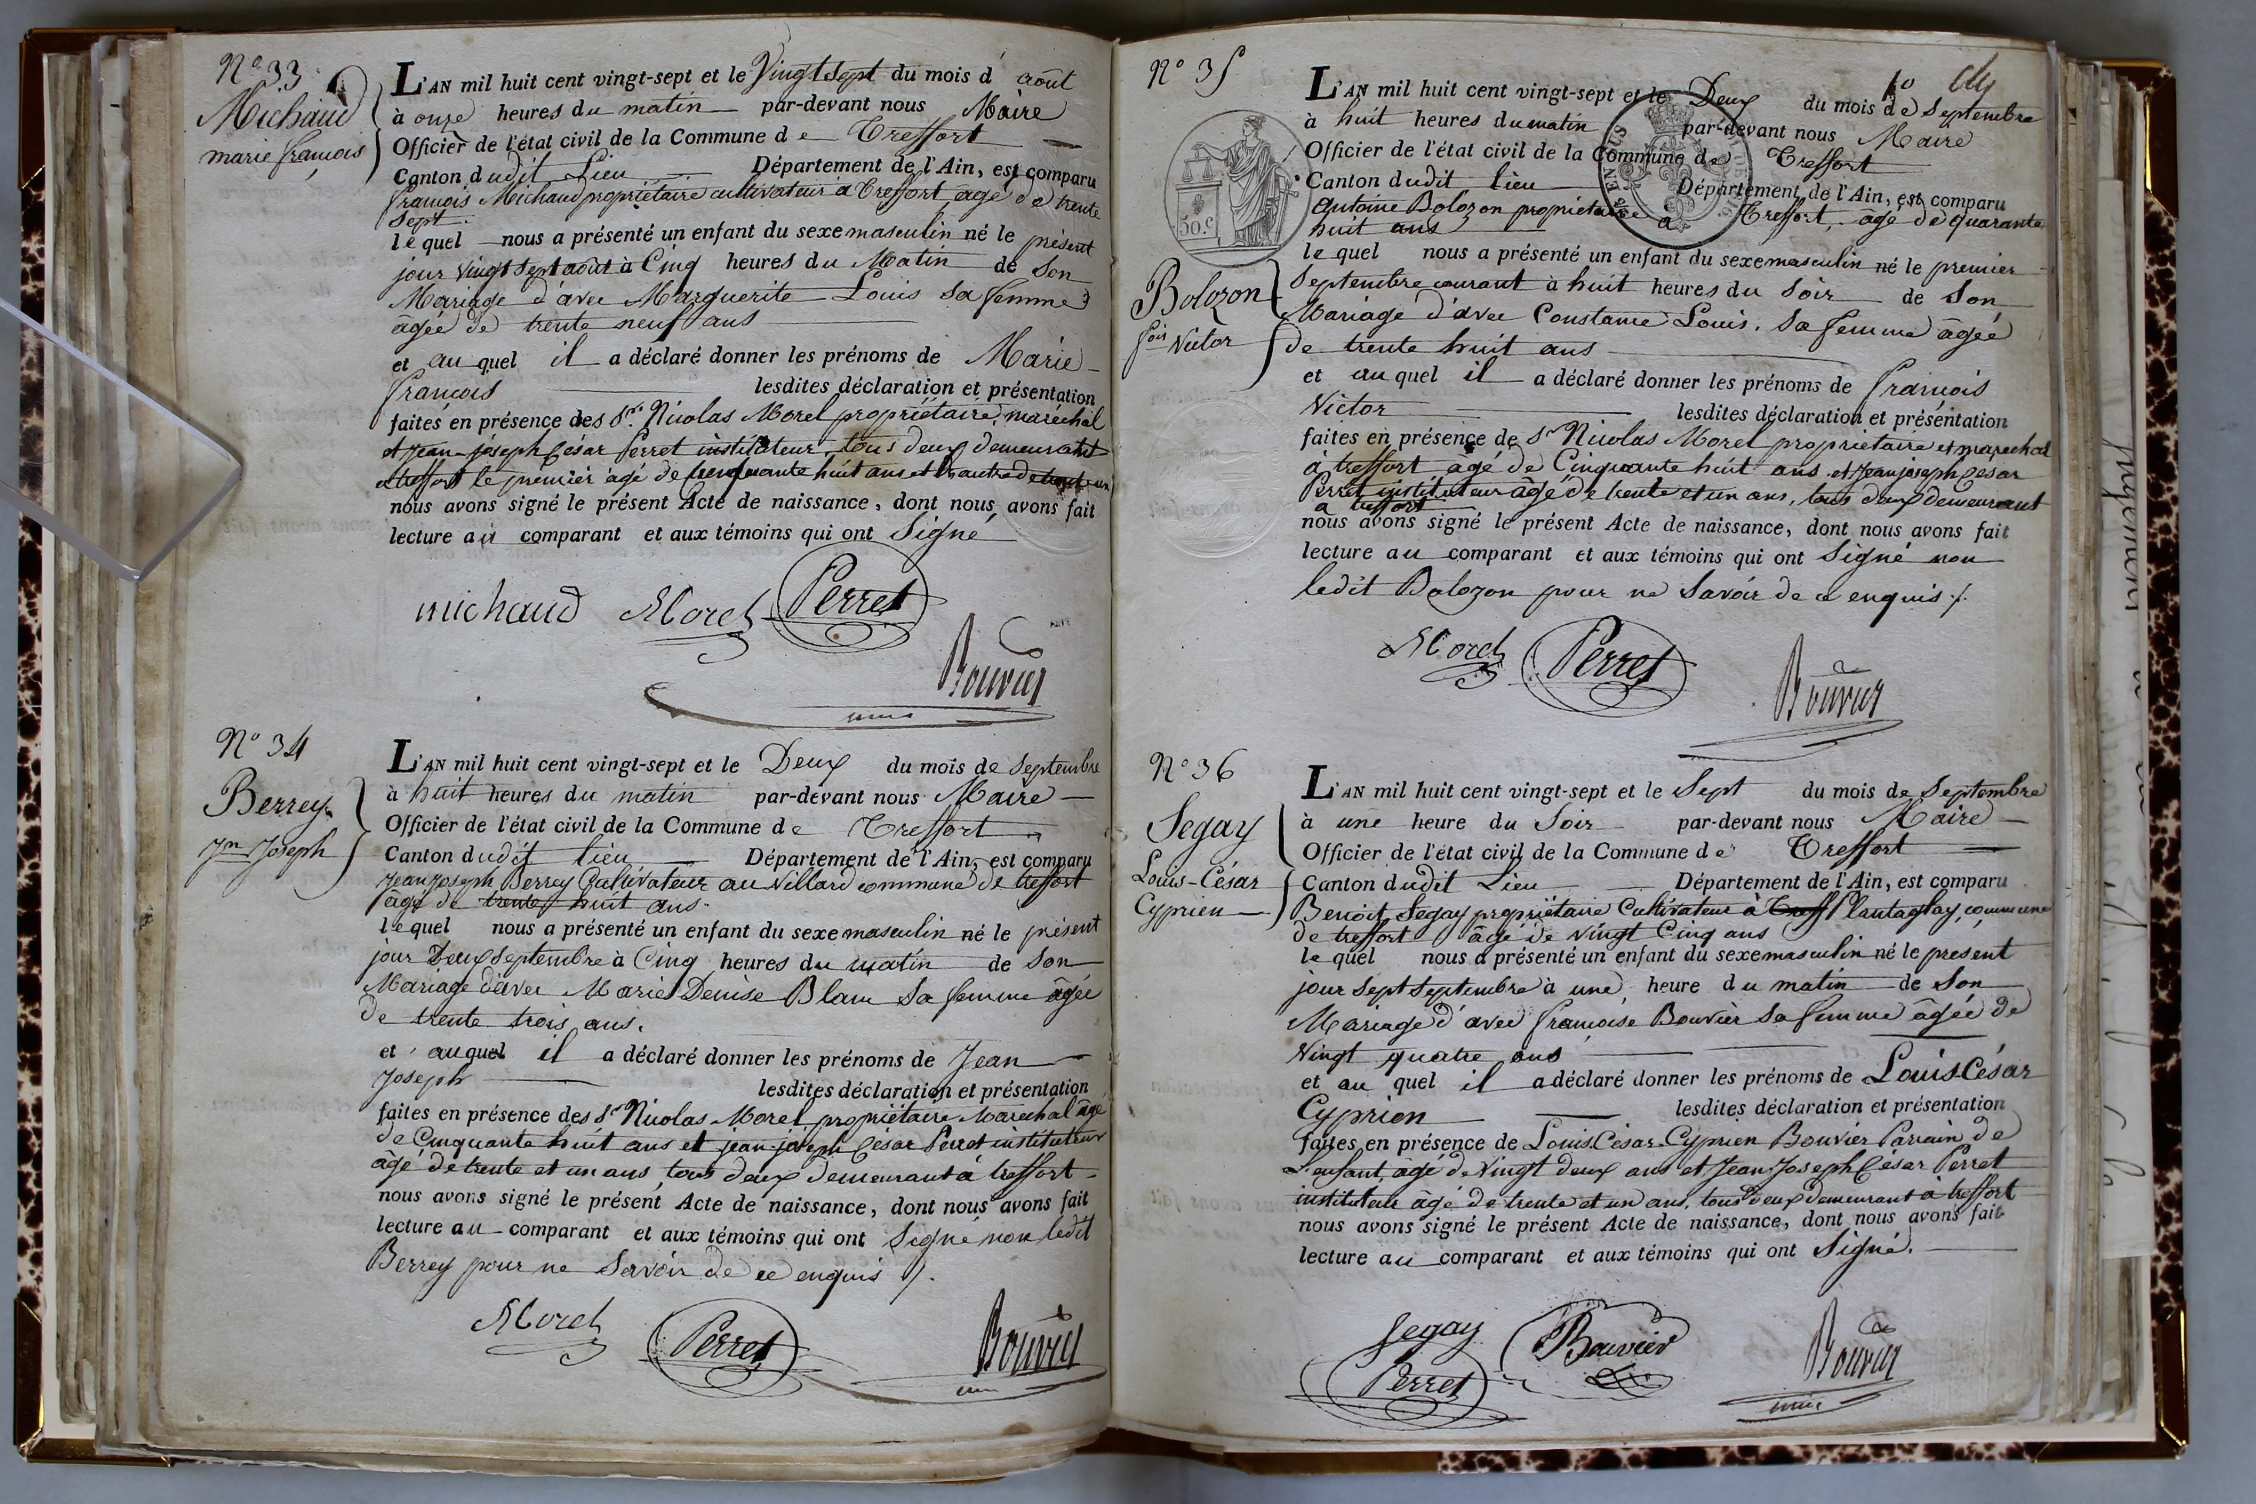 N.º 33
Michaud
marie françois
L'AN mil huit cent vingt-sept et le Vingt Sept du mois d'août
à onze heures du matin par-devant nous Maire
Officier de l'état civil de la Commune de Treffort
Canton dudit Lieu Département de l'Ain, est comparu
françois Michaud propriétaire cultivateur à Treffort, agé de trente
Sept.
lequel nous a présenté un enfant du sexe masculin né le présent
jour vingt sept août à Cinq heures du Matin de Son
Mariage d'avec Marguerite Louis sa femme
âgée de trente neuf ans
et auquel il a déclaré donner les prénoms de Marie
françois lesdites déclaration et présentation
faites en présence des Srs Nicolas Morel propriétaire, maréchal
et Jean-joseph César Perret instituteur, tous deux demeurant
a treffort le premier âgé de cinquante huit ans et l'autre de trente un
nous avons signé le présent Acte de naissance, dont nous avons fait
lecture au comparant et aux témoins qui ont Signé
michaud Morel Perret
Bouvier
N.º 34
Berrey
Jn Joseph
L'AN mil huit cent vingt-sept et le Deux du mois de Septembre
à huit heures du matin par-devant nous Maire
Officier de l'état civil de la Commune de Treffort
Canton dudit lieu Département de l'Ain, est comparu
Jean Joseph Berrey Cultivateur au Villard commune de treffort
âgé de trente huit ans.
lequel nous a présenté un enfant du sexe masculin né le présent
jour Deux septembre à Cinq heures du matin de Son
Mariage d'avec Marie Denise Blanc Sa femme âgée
de trente trois ans.
et auquel il a déclaré donner les prénoms de Jean
Joseph lesdites déclaration et présentation
faites en présence des Sr Nicolas Morel propriétaire Maréchal âgé
de Cinquante huit ans et jean-joseph César Perret instituteur
âgé de trente et un ans, tous deux demeurant à treffort
nous avons signé le présent Acte de naissance, dont nous avons fait
lecture au comparant et aux témoins qui ont Signé non ledit
Berrey pour ne Savoir de ce enquis /.
Morel Perret Bouvier
N.º 35
50. C.
Bolozon
fois Victor
L'AN mil huit cent vingt-sept et le Deux du mois de Septembre
à huit heures du matin par-devant nous Maire
Officier de l'état civil de la Commune de Treffort
Canton dudit lieu Département de l'Ain, est comparu
Antoine Bolozon propriétaire a Treffort, agé de quarante
huit ans
lequel nous a présenté un enfant du sexe masculin né le premier
Septembre courant à huit heures du Soir de Son
Mariage d'avec Constance Louis. Sa femme âgée
de trente huit ans
et auquel il a déclaré donner les prénoms de françois
Victor lesdites déclaration et présentation
faites en présence de Sr Nicolas Morel propriétaire et maréchal
à treffort agé de Cinquante huit ans et Jean joseph Cesar
Perret instituteur âgé de trente et un ans, tous deux demeurant
a treffort
nous avons signé le présent Acte de naissance, dont nous avons fait
lecture au comparant et aux témoins qui ont Signé non
ledit Bolozon pour ne Savoir de ce enquis /.
Morel Perret Bouvier
N.º 36
Segay
Louis-César
Cyprien
L'AN mil huit cent vingt-sept et le Sept du mois de Septembre
à une heure du Soir par-devant nous Maire
Officier de l'état civil de la Commune de Treffort
Canton dudit Lieu Département de l'Ain, est comparu
Benoit Segay propriétaire Cultivateur à Treff Plantaglay, commune
de treffort âgé de vingt Cinq ans
lequel nous a présenté un enfant du sexe masculin né le present
jour sept Septembre à une heure du matin de Son
Mariage d'avec françoise Bouvier Sa femme âgée de
Vingt quatre ans
et auquel il a déclaré donner les prénoms de Louis César
Cyprien lesdites déclaration et présentation
faites en présence de Louis César-Cyprien Bouvier Parrain de
L'enfant, agé de Vingt deux ans et Jean Joseph César Perret
instituteur âgé de trente et un ans, tous deux demeurant à treffort
nous avons signé le présent Acte de naissance, dont nous avons fait
lecture au comparant et aux témoins qui ont Signé.
Segay Bouvier Bouvier
Perret